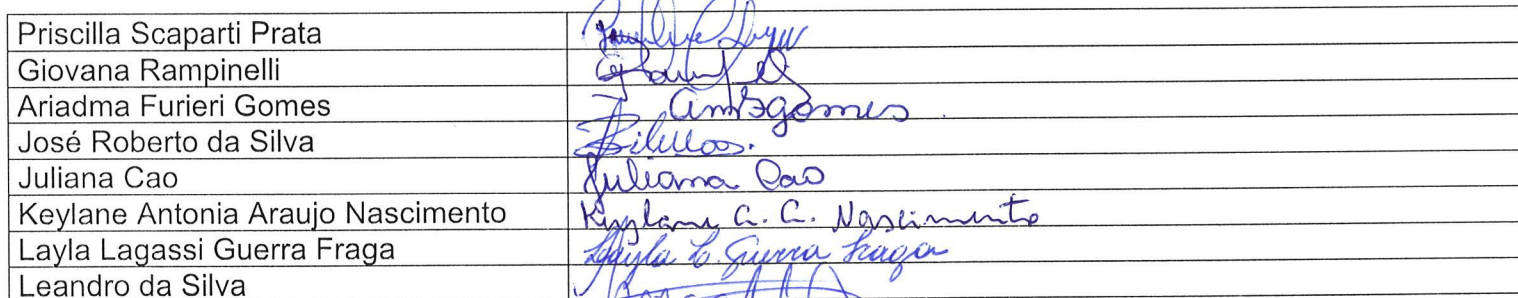 Priscilla Scaparti Prata
Giovana Rampinelli
Ariadma Furieri Gomes
José Roberto da Silva
Juliana Cao Juliana Cao
Keylane Antonia Araujo Nascimento Keylane A. A. Nascimento
Layla Lagassi Guerra Fraga Layla L. Guerra Fraga
Leandro da Silva